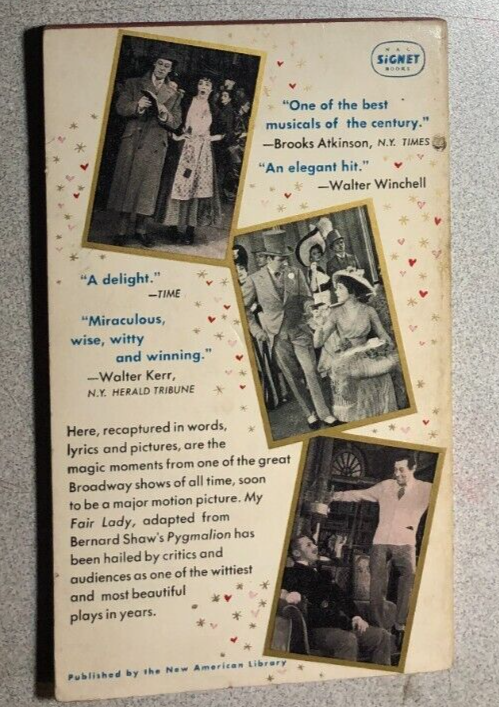 NAL
SIGNET
BOOKS
"One of the best
musicals of the century."
—Brooks Atkinson, N.Y. TIMES
"An elegant hit."
—Walter Winchell
"A delight."
—TIME
"Miraculous,
wise, witty
and winning."
—Walter Kerr,
N.Y. HERALD TRIBUNE
Here, recaptured in words,
lyrics and pictures, are the
magic moments from one of the great
Broadway shows of all time, soon
to be a major motion picture. My
Fair Lady, adapted from
Bernard Shaw's Pygmalion has
been hailed by critics and
audiences as one of the wittiest
and most beautiful
plays in years.
Published by the New American Library